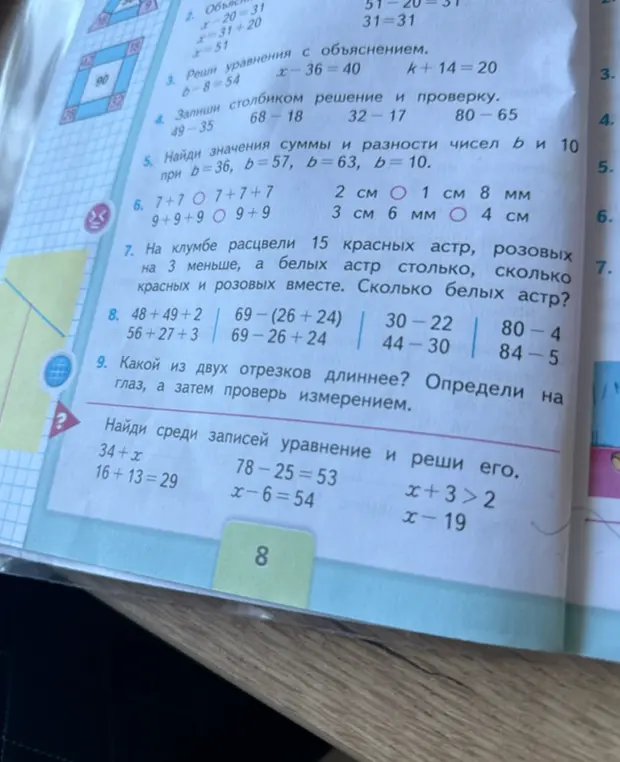 2.
x − 20 = 31
x = 31 + 20
x = 51
51 − 20 = 31
31 = 31
3. Реши уравнения с объяснением.
b − 8 = 54 x − 36 = 40 k + 14 = 20
4. Запиши столбиком решение и проверку.
49 − 35 68 − 18 32 − 17 80 − 65
5. Найди значения суммы и разности чисел b и 10
при b = 36, b = 57, b = 63, b = 10.
6. 7 + 7 ○ 7 + 7 + 7 2 см ○ 1 см 8 мм
9 + 9 + 9 ○ 9 + 9 3 см 6 мм ○ 4 см
7. На клумбе расцвели 15 красных астр, розовых
на 3 меньше, а белых астр столько, сколько
красных и розовых вместе. Сколько белых астр?
8. 48 + 49 + 2 69 − (26 + 24) 30 − 22 80 − 4
56 + 27 + 3 69 − 26 + 24 44 − 30 84 − 5
9. Какой из двух отрезков длиннее? Определи на
глаз, а затем проверь измерением.
?
Найди среди записей уравнение и реши его.
34 + x 78 − 25 = 53 x + 3 > 2
16 + 13 = 29 x − 6 = 54 x − 19
8
90
3.
4.
5.
6.
7.